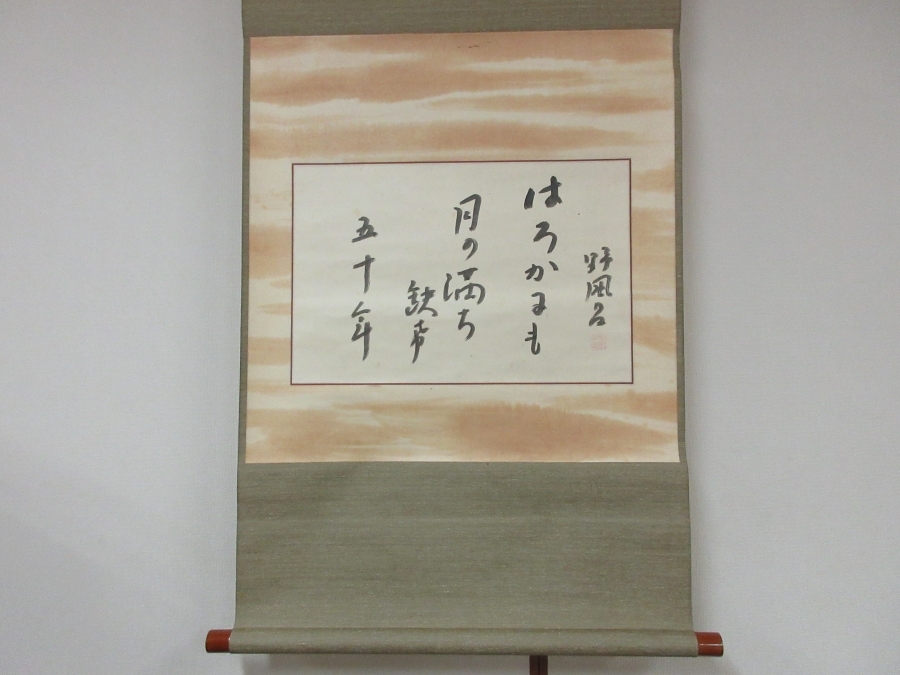 野風呂
はろかにも
月の満ち
缺け
五十年